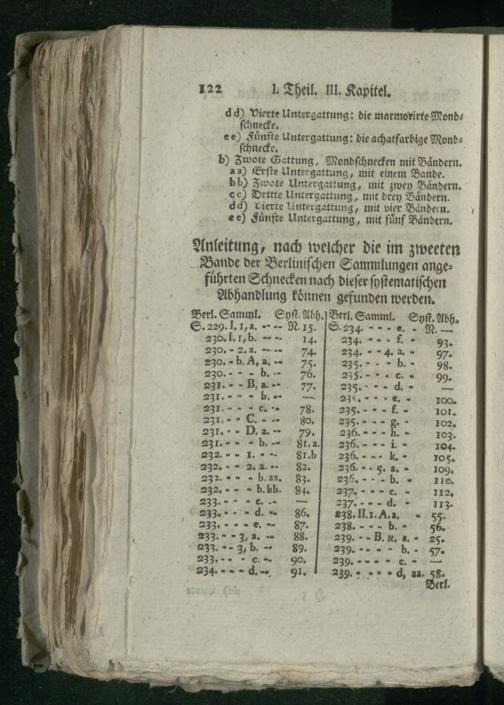 122 I. Theil. III. Kapitel.
dd) Vierte Untergattung: die marmorirte Mond-
schnecke.
ee) Fünfte Untergattung: die achatfarbige Mond-
schnecke.
b) Zwote Gattung, Mondschnecken mit Bändern.
aa) Erste Untergattung, mit einem Bande.
bb) Zwote Untergattung, mit zwey Bändern.
cc) Dritte Untergattung, mit drey Bändern.
dd) Vierte Untergattung, mit vier Bändern.
ee) Fünfte Untergattung, mit fünf Bändern.
Anleitung, nach welcher die im zweeten
Bande der Berlinischen Sammlungen ange-
führten Schnecken nach dieser systematischen
Abhandlung können gefunden werden.
Berl. Samml. Syst. Abh.
S. 229. I, 1, a. - -- N. 15.
230. I, 1, b. -- 14.
230. - 2. a. --- 74.
230. - b. A, a. -- 75.
230. - - b. -- 76.
231. - - B, a. -- 77.
231. - - - b. -- —
231. - - - c. -- 78.
231. - - C. - -- 80.
231. - - D. a. -- 79.
231. - - - b. -- 81. a.
232. - - 1. - -- 81. b
232. - - 2. a. -- 82.
232. - - - b. aa. 83.
232. - - - b. bb. 84.
233. - - - c. -- —
233. - - - d. -- 86.
233. - - - e. -- 87.
233. - - 3, a. -- 88.
233. - - 3, b. -- 89.
233. - - - c. -- 90.
234. - - - d. -- 91.
Berl. Samml. Syst. Abh.
S. 234. - - - e. - N. —
234. - - - f. - 93.
234. - - 4. a. - 97.
235. - - - b. - 98.
235. - - - c. - 99.
235. - - - d. - —
235. - - - e. - 100.
235. - - - f. - 101.
235. - - - g. - 102.
236. - - - h. - 103.
236. - - - i. - 104.
236. - - - k. - 105.
236. - - 5. a. - 109.
236. - - - b. - 110.
237. - - - c. - 112.
237. - - - d. - 113.
238. II. 1. A. a. - 55.
238. - - - b. - 56.
239. - - B. א, a. - 25.
239. - - - - b. - 57.
239. - - - - c. - —
239. - - - - d, aa. 58.
Berl.